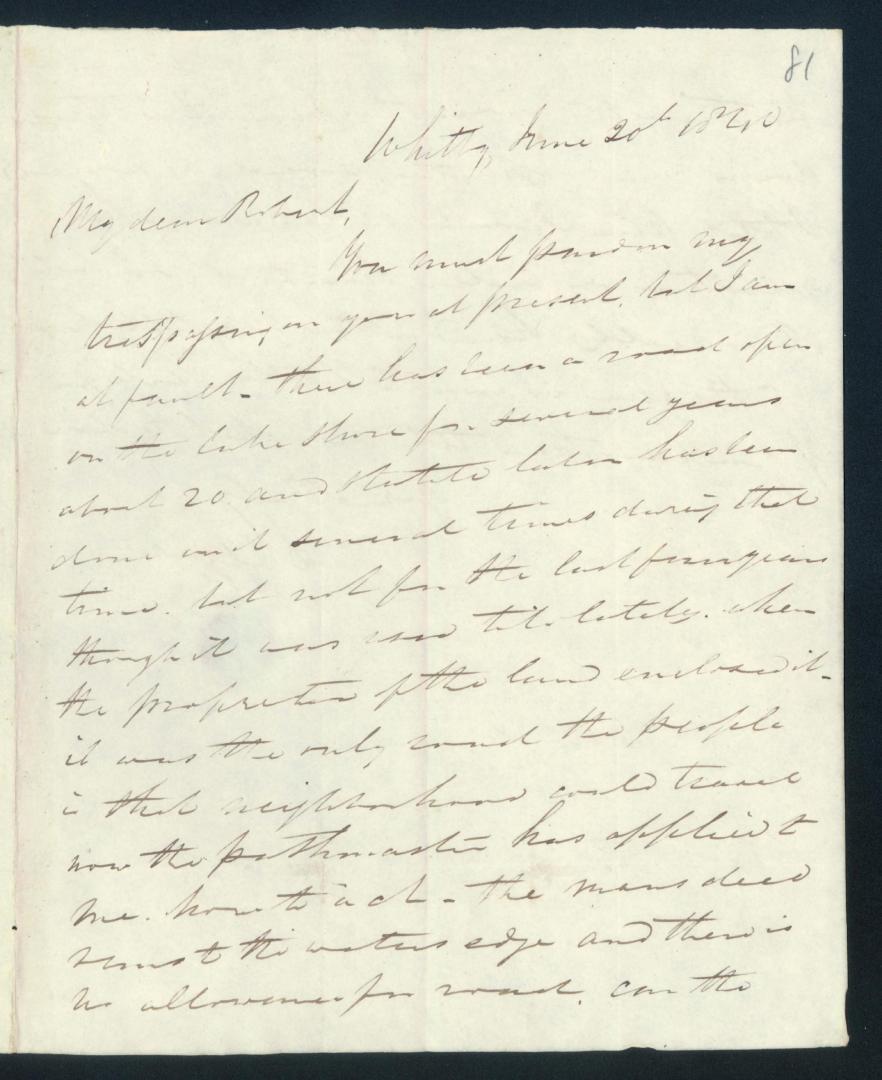 81
Whitby, June 20th 1840
My dear Robert,
You must pardon my
trespassing on you at present, but I am
at fault - there has been a road open
on the lake shore for several years
about 20 and Statute labor has been
done on it several times during that
time. but not for the last few years
though it was used till lately. when
the proprietor of the land enclosed it -
it was the only road the people
in that neighborhood could travel
now the pathmaster has applied to
me. how to act - the mans deed
runs to the waters edge and there is
no allowance for road. can the